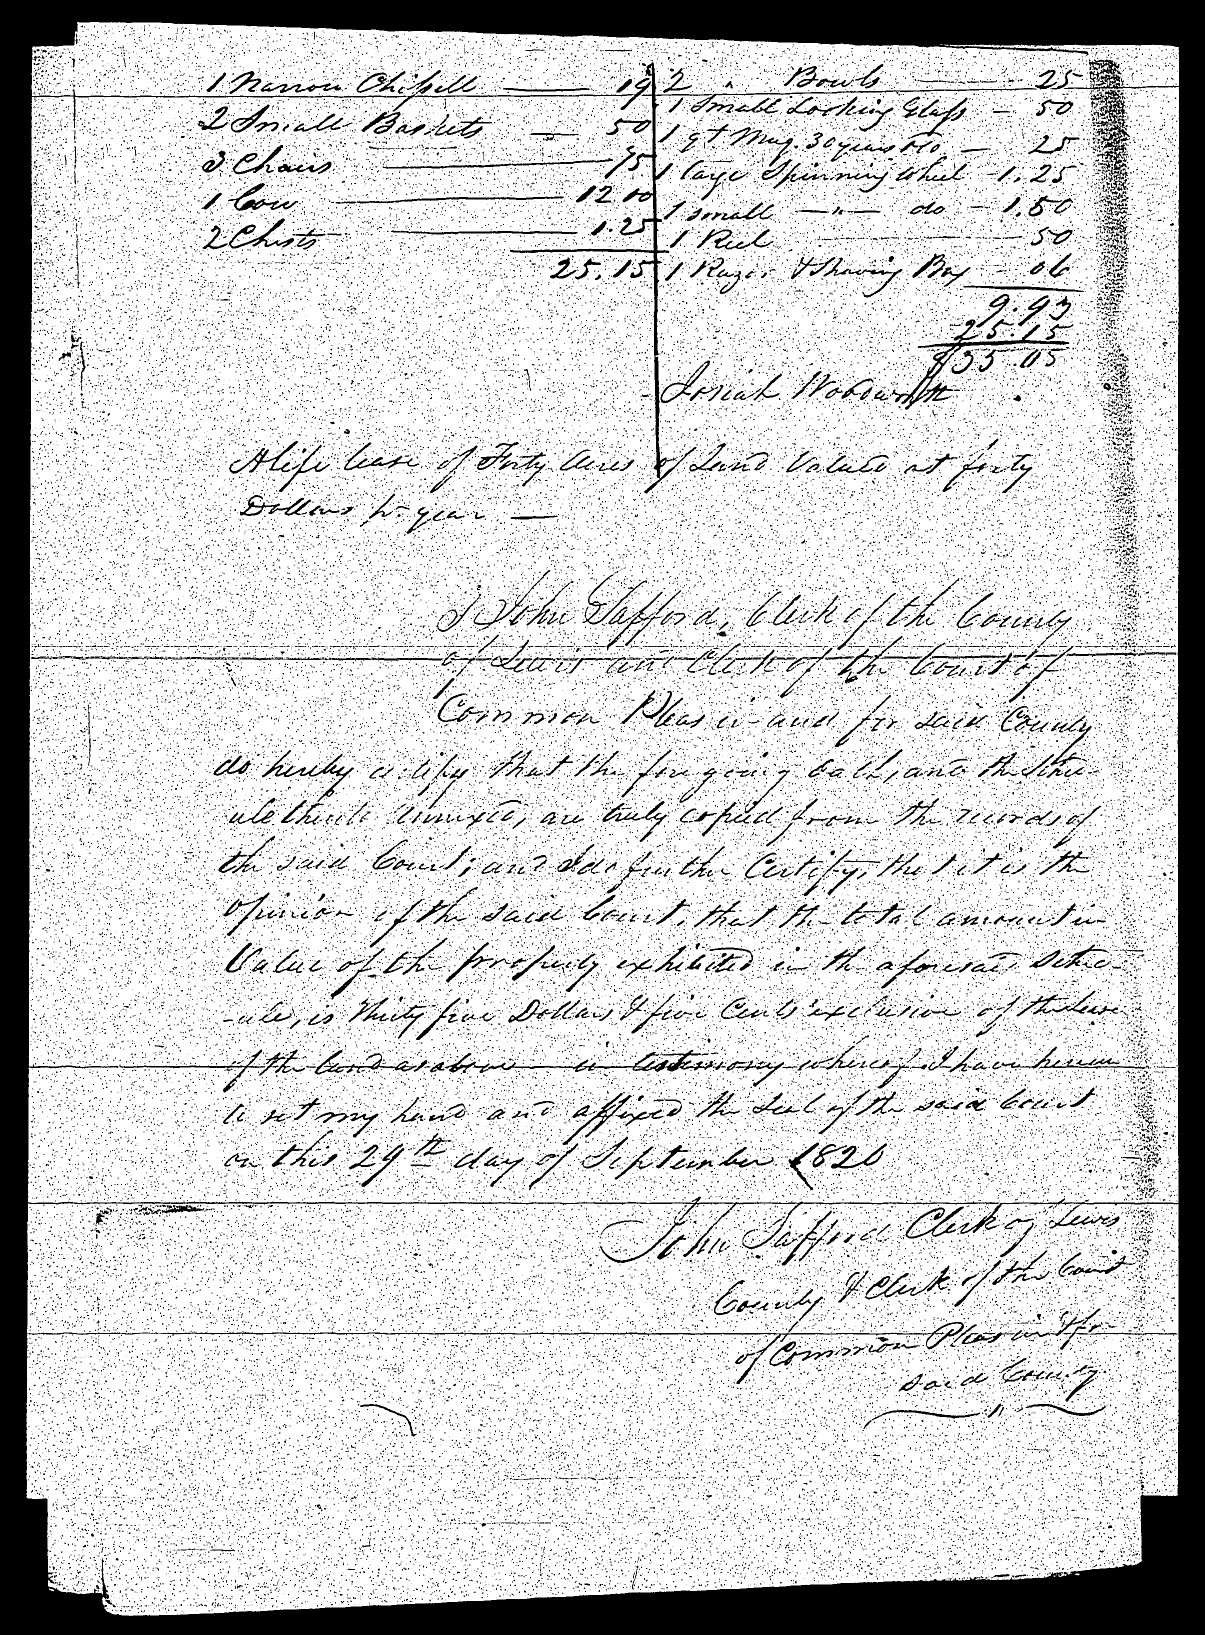 1 Narrow Chissell — 19
2 Small Baskets — 50
3 Chairs — 75
1 Cow — 12 00
2 Chests — 1.25
25.15
2 " Bowls — 25
1 Small Looking Glass — 50
1 qt Mug 30 years old — 25
1 large Spinning Wheel - 1.25
1 small — " — do - 1.50
1 Reel — 50
1 Razor & Shaving Box - 06
9.93
25.15
$35.05
Josiah Woodworth
A life lease of Forty Acres of Land Valued at forty
Dollars pr year —
I John Safford, Clerk of the County
of Lewis and Clerk of the Court of
Common Pleas in and for said County
do hereby certify that the foregoing oath, and the Sched-
ule thereto annexed, are truly copied from the records of
the said Court; and I do further Certify, that it is the
opinion of the said Court, that the total amount in
Value of the property exhibited in the aforesaid Sched-
-ule, is Thirty five Dollars & five Cents exclusive of the Lease
of the land as above - in testimony whereof I have hereun
to set my hand and affixed the Seal of the said Court
on this 29th day of September 1820
John Safford Clerk of Lewis
County & Clerk of the Court
of Common Pleas in & for
said County
"